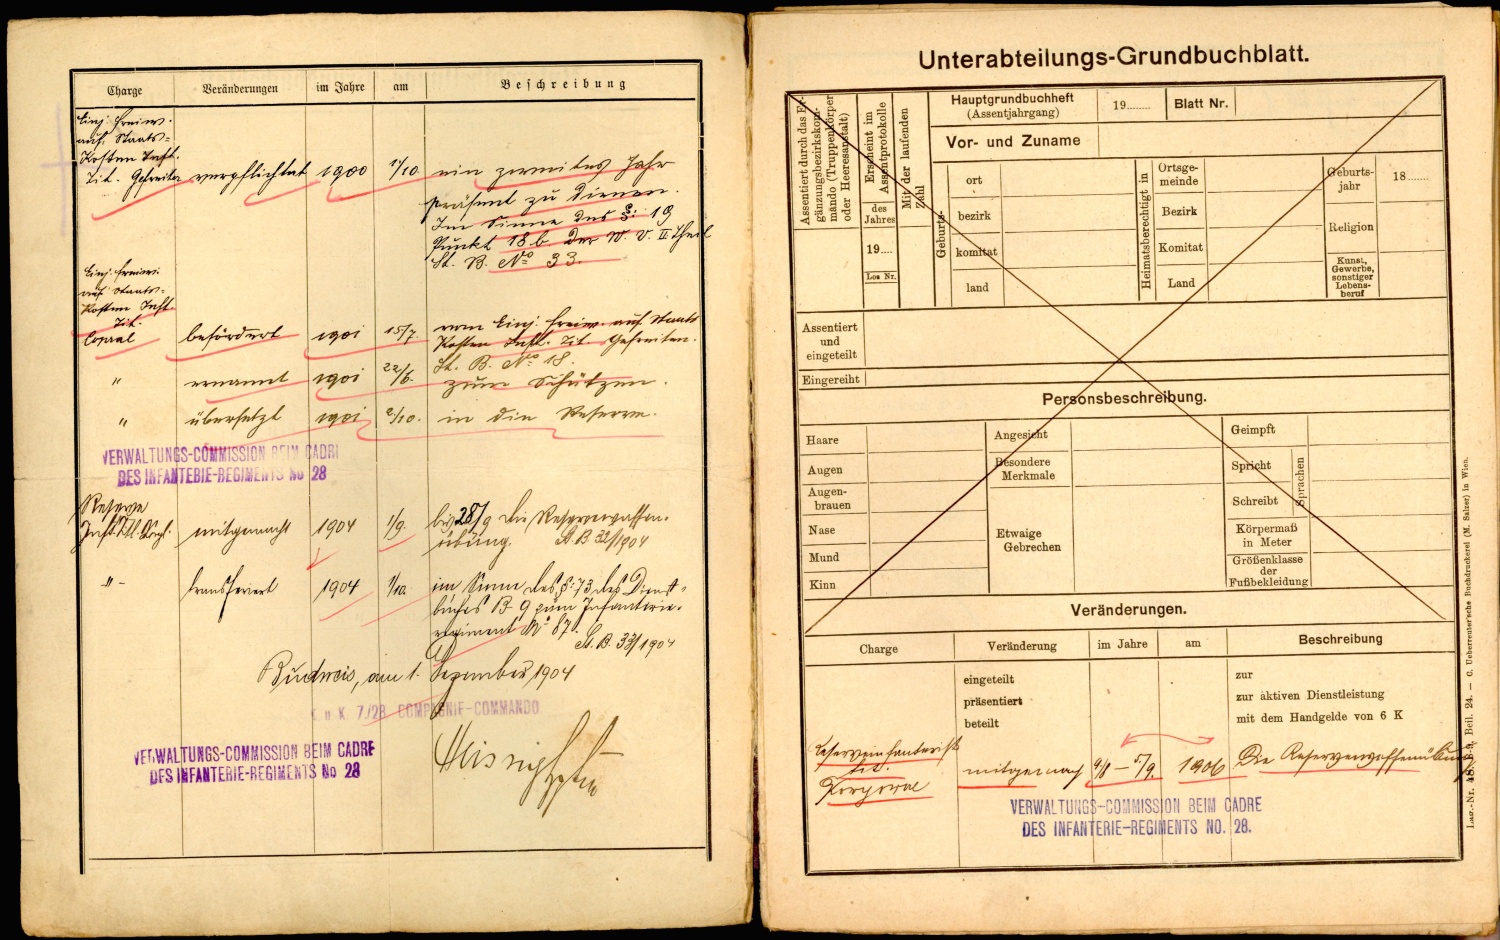 Charge Veränderungen im Jahre am Beschreibung
Einj. freiw.
auf Staats-
Kosten Inft.
Tit. Gefreiter verpflichtet 1900 1/10 ein zweites Jahr
präsent zu dienen.
Im Sinne des §: 19
Punkt 18 b der W. V. II. Theil
St. B. No 33.
Einj. freiw.
auf Staats-
Kosten Inft.
Tit.
Corpral befördert 1901 15/7. vom Einj. freiw. auf Staats
Kosten Inft. Tit. Gefreiten.
St. B. No 18.
" ernannt 1901 22/8. zum Schützen.
" übersetzt 1901 2/10. in die Reserve.
VERWALTUNGS-COMMISSION BEIM CADRE
DES INFANTERIE-REGIMENTS No 28
Reserve
mitgemacht 1904 1/9. bis 28/9 die Reservewaffen-
übung. St. B. 32/1904
-"- transferirt 1904 1/10. im Sinne des §: 73 des Dienst-
buches B-9 zum Infanterie-
regiment No 87.
St. B. 33/1904
Budweis, am 1. September 1904
K. u. K. 7./28. COMPAGNIE-COMMANDO
VERWALTUNGS-COMMISSION BEIM CADRE
DES INFANTERIE-REGIMENTS No 28
Unterabteilungs-Grundbuchblatt.
Assentiert durch das Er-
gänzungsbezirkskom-
mando (Truppenkörper
oder Heeresanstalt)
Erscheint im
Assentprotokolle
des
Jahres
19....
Los Nr.
Mit der laufenden
Zahl
Hauptgrundbuchheft
(Assentjahrgang)
19........
Blatt Nr.
Vor- und Zuname
Geburts-
ort
bezirk
komitat
land
Heimatsberechtigt in
Ortsge-
meinde
Bezirk
Komitat
Land
Geburts-
jahr
18.......
Religion
Kunst,
Gewerbe,
sonstiger
Lebens-
beruf
Assentiert
und
eingeteilt
Eingereiht
Personsbeschreibung.
Haare
Augen
Augen-
brauen
Nase
Mund
Kinn
Angesicht
Besondere
Merkmale
Etwaige
Gebrechen
Geimpft
Spricht
Schreibt
Sprachen
Körpermaß
in Meter
Größenklasse
der
Fußbekleidung
Veränderungen.
Charge Veränderung im Jahre am Beschreibung
eingeteilt zur
präsentiert zur aktiven Dienstleistung
beteilt mit dem Handgelde von 6 K
Reserveinfanterist
tit.
Korporal
mitgemacht 9/8 – 5/9. 1906 Die Reservewaffenübung
VERWALTUNGS-COMMISSION BEIM CADRE
DES INFANTERIE-REGIMENTS NO. 28.
Lag.-Nr. 48. B-9, Beil. 24. — C. Ueberreuter'sche Buchdruckerei (M. Salzer) in Wien.